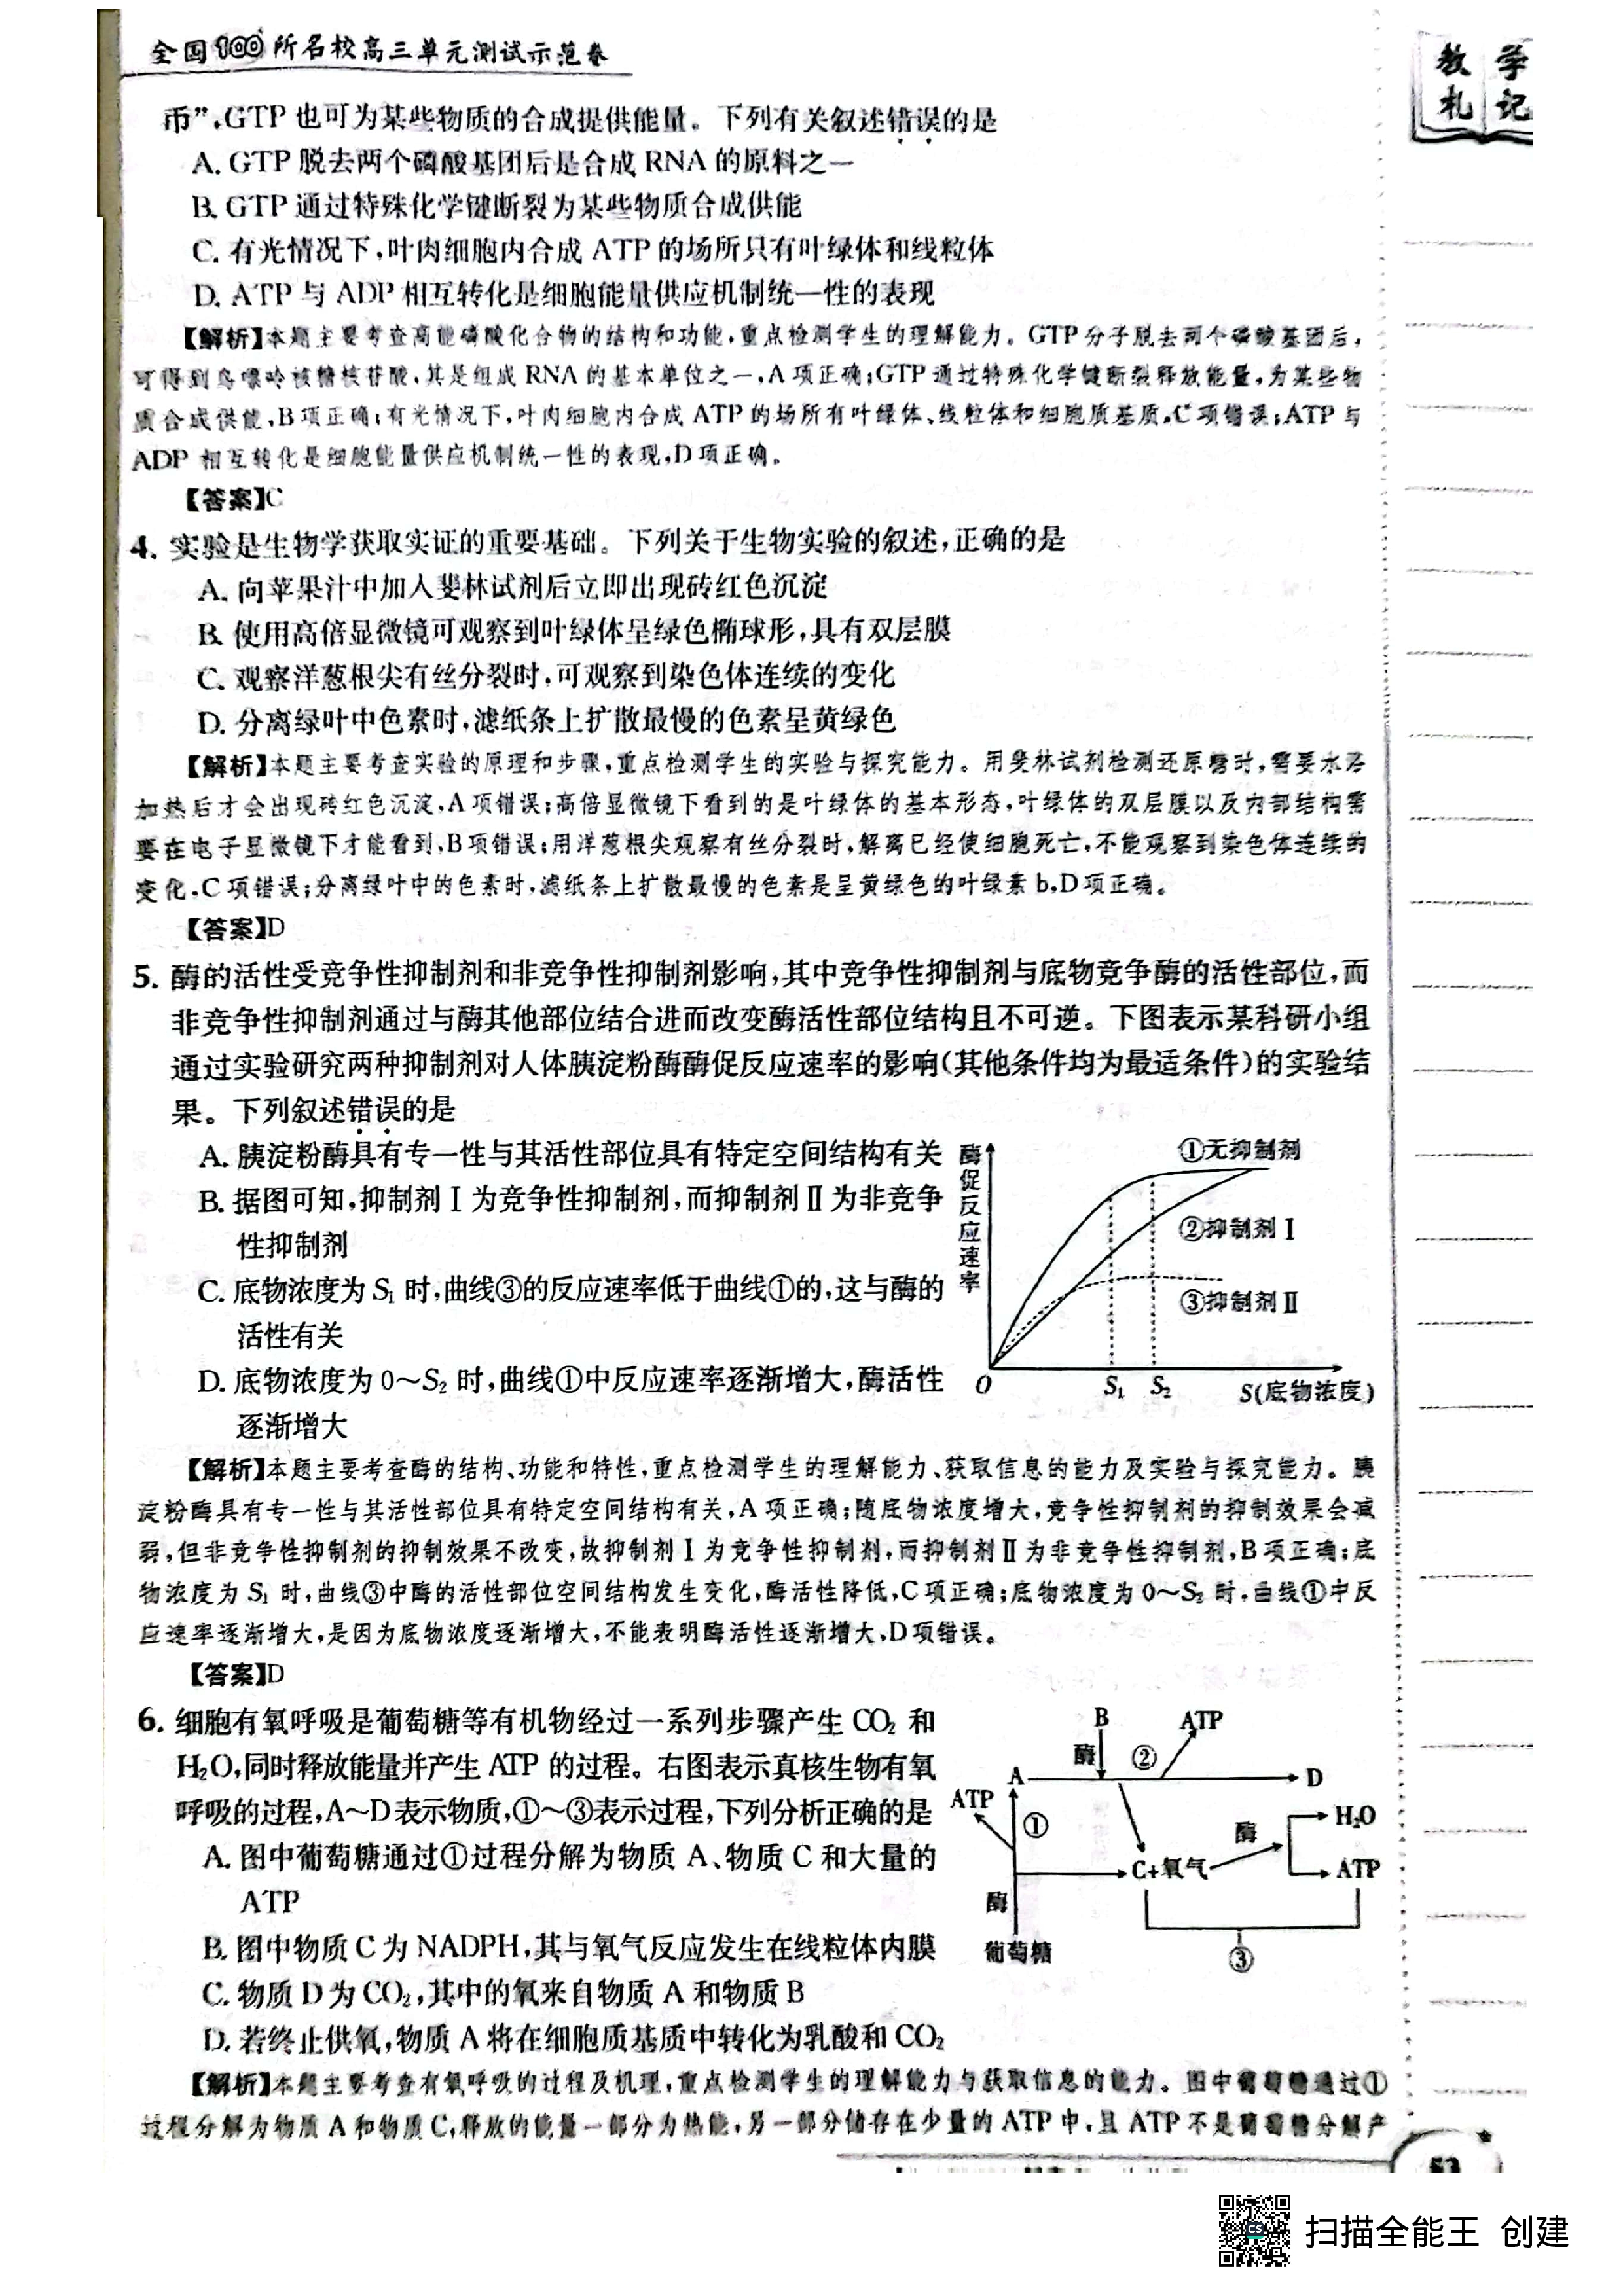 全国100所名校高三单元测试示范卷
教 学
札 记
币”,GTP也可为某些物质的合成提供能量。下列有关叙述错误的是
A. GTP脱去两个磷酸基团后是合成RNA的原料之一
B. GTP通过特殊化学键断裂为某些物质合成供能
C. 有光情况下,叶肉细胞内合成ATP的场所只有叶绿体和线粒体
D. ATP与ADP相互转化是细胞能量供应机制统一性的表现
【解析】本题主要考查高能磷酸化合物的结构和功能,重点检测学生的理解能力。GTP分子脱去两个磷酸基团后,
可得到鸟嘌呤核糖核苷酸,其是组成RNA的基本单位之一,A项正确;GTP通过特殊化学键断裂释放能量,为某些物
质合成供能,B项正确;有光情况下,叶肉细胞内合成ATP的场所有叶绿体、线粒体和细胞质基质,C项错误;ATP与
ADP相互转化是细胞能量供应机制统一性的表现,D项正确。
【答案】C
4. 实验是生物学获取实证的重要基础。下列关于生物实验的叙述,正确的是
A. 向苹果汁中加入斐林试剂后立即出现砖红色沉淀
B. 使用高倍显微镜可观察到叶绿体呈绿色椭球形,具有双层膜
C. 观察洋葱根尖有丝分裂时,可观察到染色体连续的变化
D. 分离绿叶中色素时,滤纸条上扩散最慢的色素呈黄绿色
【解析】本题主要考查实验的原理和步骤,重点检测学生的实验与探究能力。用斐林试剂检测还原糖时,需要水浴
加热后才会出现砖红色沉淀,A项错误;高倍显微镜下看到的是叶绿体的基本形态,叶绿体的双层膜以及内部结构需
要在电子显微镜下才能看到,B项错误;用洋葱根尖观察有丝分裂时,解离已经使细胞死亡,不能观察到染色体连续的
变化,C项错误;分离绿叶中的色素时,滤纸条上扩散最慢的色素是呈黄绿色的叶绿素b,D项正确。
【答案】D
5. 酶的活性受竞争性抑制剂和非竞争性抑制剂影响,其中竞争性抑制剂与底物竞争酶的活性部位,而
非竞争性抑制剂通过与酶其他部位结合进而改变酶活性部位结构且不可逆。下图表示某科研小组
通过实验研究两种抑制剂对人体胰淀粉酶酶促反应速率的影响(其他条件均为最适条件)的实验结
果。下列叙述错误的是
A. 胰淀粉酶具有专一性与其活性部位具有特定空间结构有关
B. 据图可知,抑制剂Ⅰ为竞争性抑制剂,而抑制剂Ⅱ为非竞争
性抑制剂
C. 底物浓度为S₁时,曲线③的反应速率低于曲线①的,这与酶的
活性有关
D. 底物浓度为0～S₂时,曲线①中反应速率逐渐增大,酶活性
逐渐增大
酶促反应速率
①无抑制剂
②抑制剂Ⅰ
③抑制剂Ⅱ
O S₁ S₂ S(底物浓度)
【解析】本题主要考查酶的结构、功能和特性,重点检测学生的理解能力、获取信息的能力及实验与探究能力。胰
淀粉酶具有专一性与其活性部位具有特定空间结构有关,A项正确;随底物浓度增大,竞争性抑制剂的抑制效果会减
弱,但非竞争性抑制剂的抑制效果不改变,故抑制剂Ⅰ为竞争性抑制剂,而抑制剂Ⅱ为非竞争性抑制剂,B项正确;底
物浓度为S₁时,曲线③中酶的活性部位空间结构发生变化,酶活性降低,C项正确;底物浓度为0～S₂时,曲线①中反
应速率逐渐增大,是因为底物浓度逐渐增大,不能表明酶活性逐渐增大,D项错误。
【答案】D
6. 细胞有氧呼吸是葡萄糖等有机物经过一系列步骤产生CO₂和
H₂O,同时释放能量并产生ATP的过程。右图表示真核生物有氧
呼吸的过程,A～D表示物质,①～③表示过程,下列分析正确的是
A. 图中葡萄糖通过①过程分解为物质A、物质C和大量的
ATP
B. 图中物质C为NADPH,其与氧气反应发生在线粒体内膜
C. 物质D为CO₂,其中的氧来自物质A和物质B
D. 若终止供氧,物质A将在细胞质基质中转化为乳酸和CO₂
B ATP
酶 ②
A D
ATP ① 酶 H₂O
C+氧气 ATP
酶
葡萄糖 ③
【解析】本题主要考查有氧呼吸的过程及机理,重点检测学生的理解能力与获取信息的能力。图中葡萄糖通过①
过程分解为物质A和物质C,释放的能量一部分为热能,另一部分储存在少量的ATP中,且ATP不是葡萄糖分解产
扫描全能王 创建